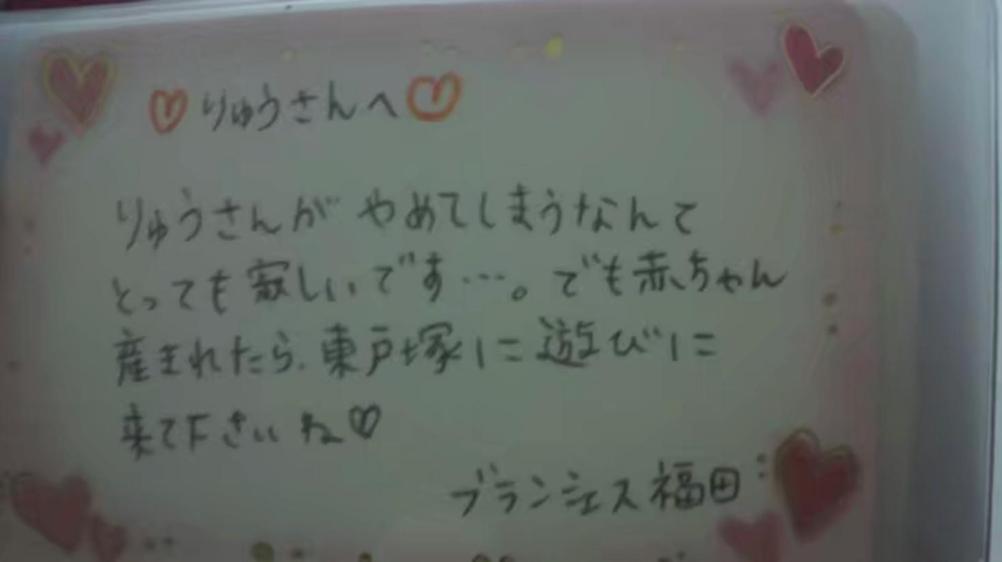 ♡りゅうさんへ♡
りゅうさんが やめてしまうなんて
とっても寂しいです…。でも赤ちゃん
産まれたら、東戸塚に遊びに
来て下さいね♡
ブランシェス福田